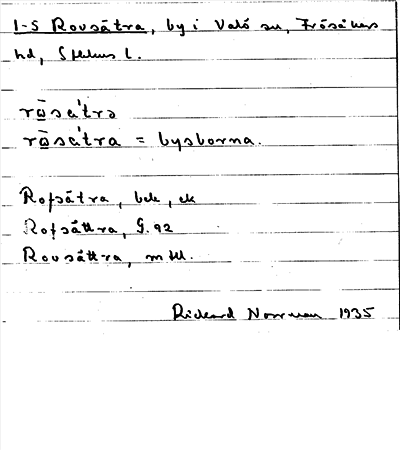 1-S Rovsätra, by i Valö sn, Frösåkers
hd, Sthlms l.
rω̄sa'trə
rω̄sa'tra = bysborna.
Rofsätra, bek, ek
Rofsättra, G. 92
Rovsättra, mtl.
Rickard Norrman 1935